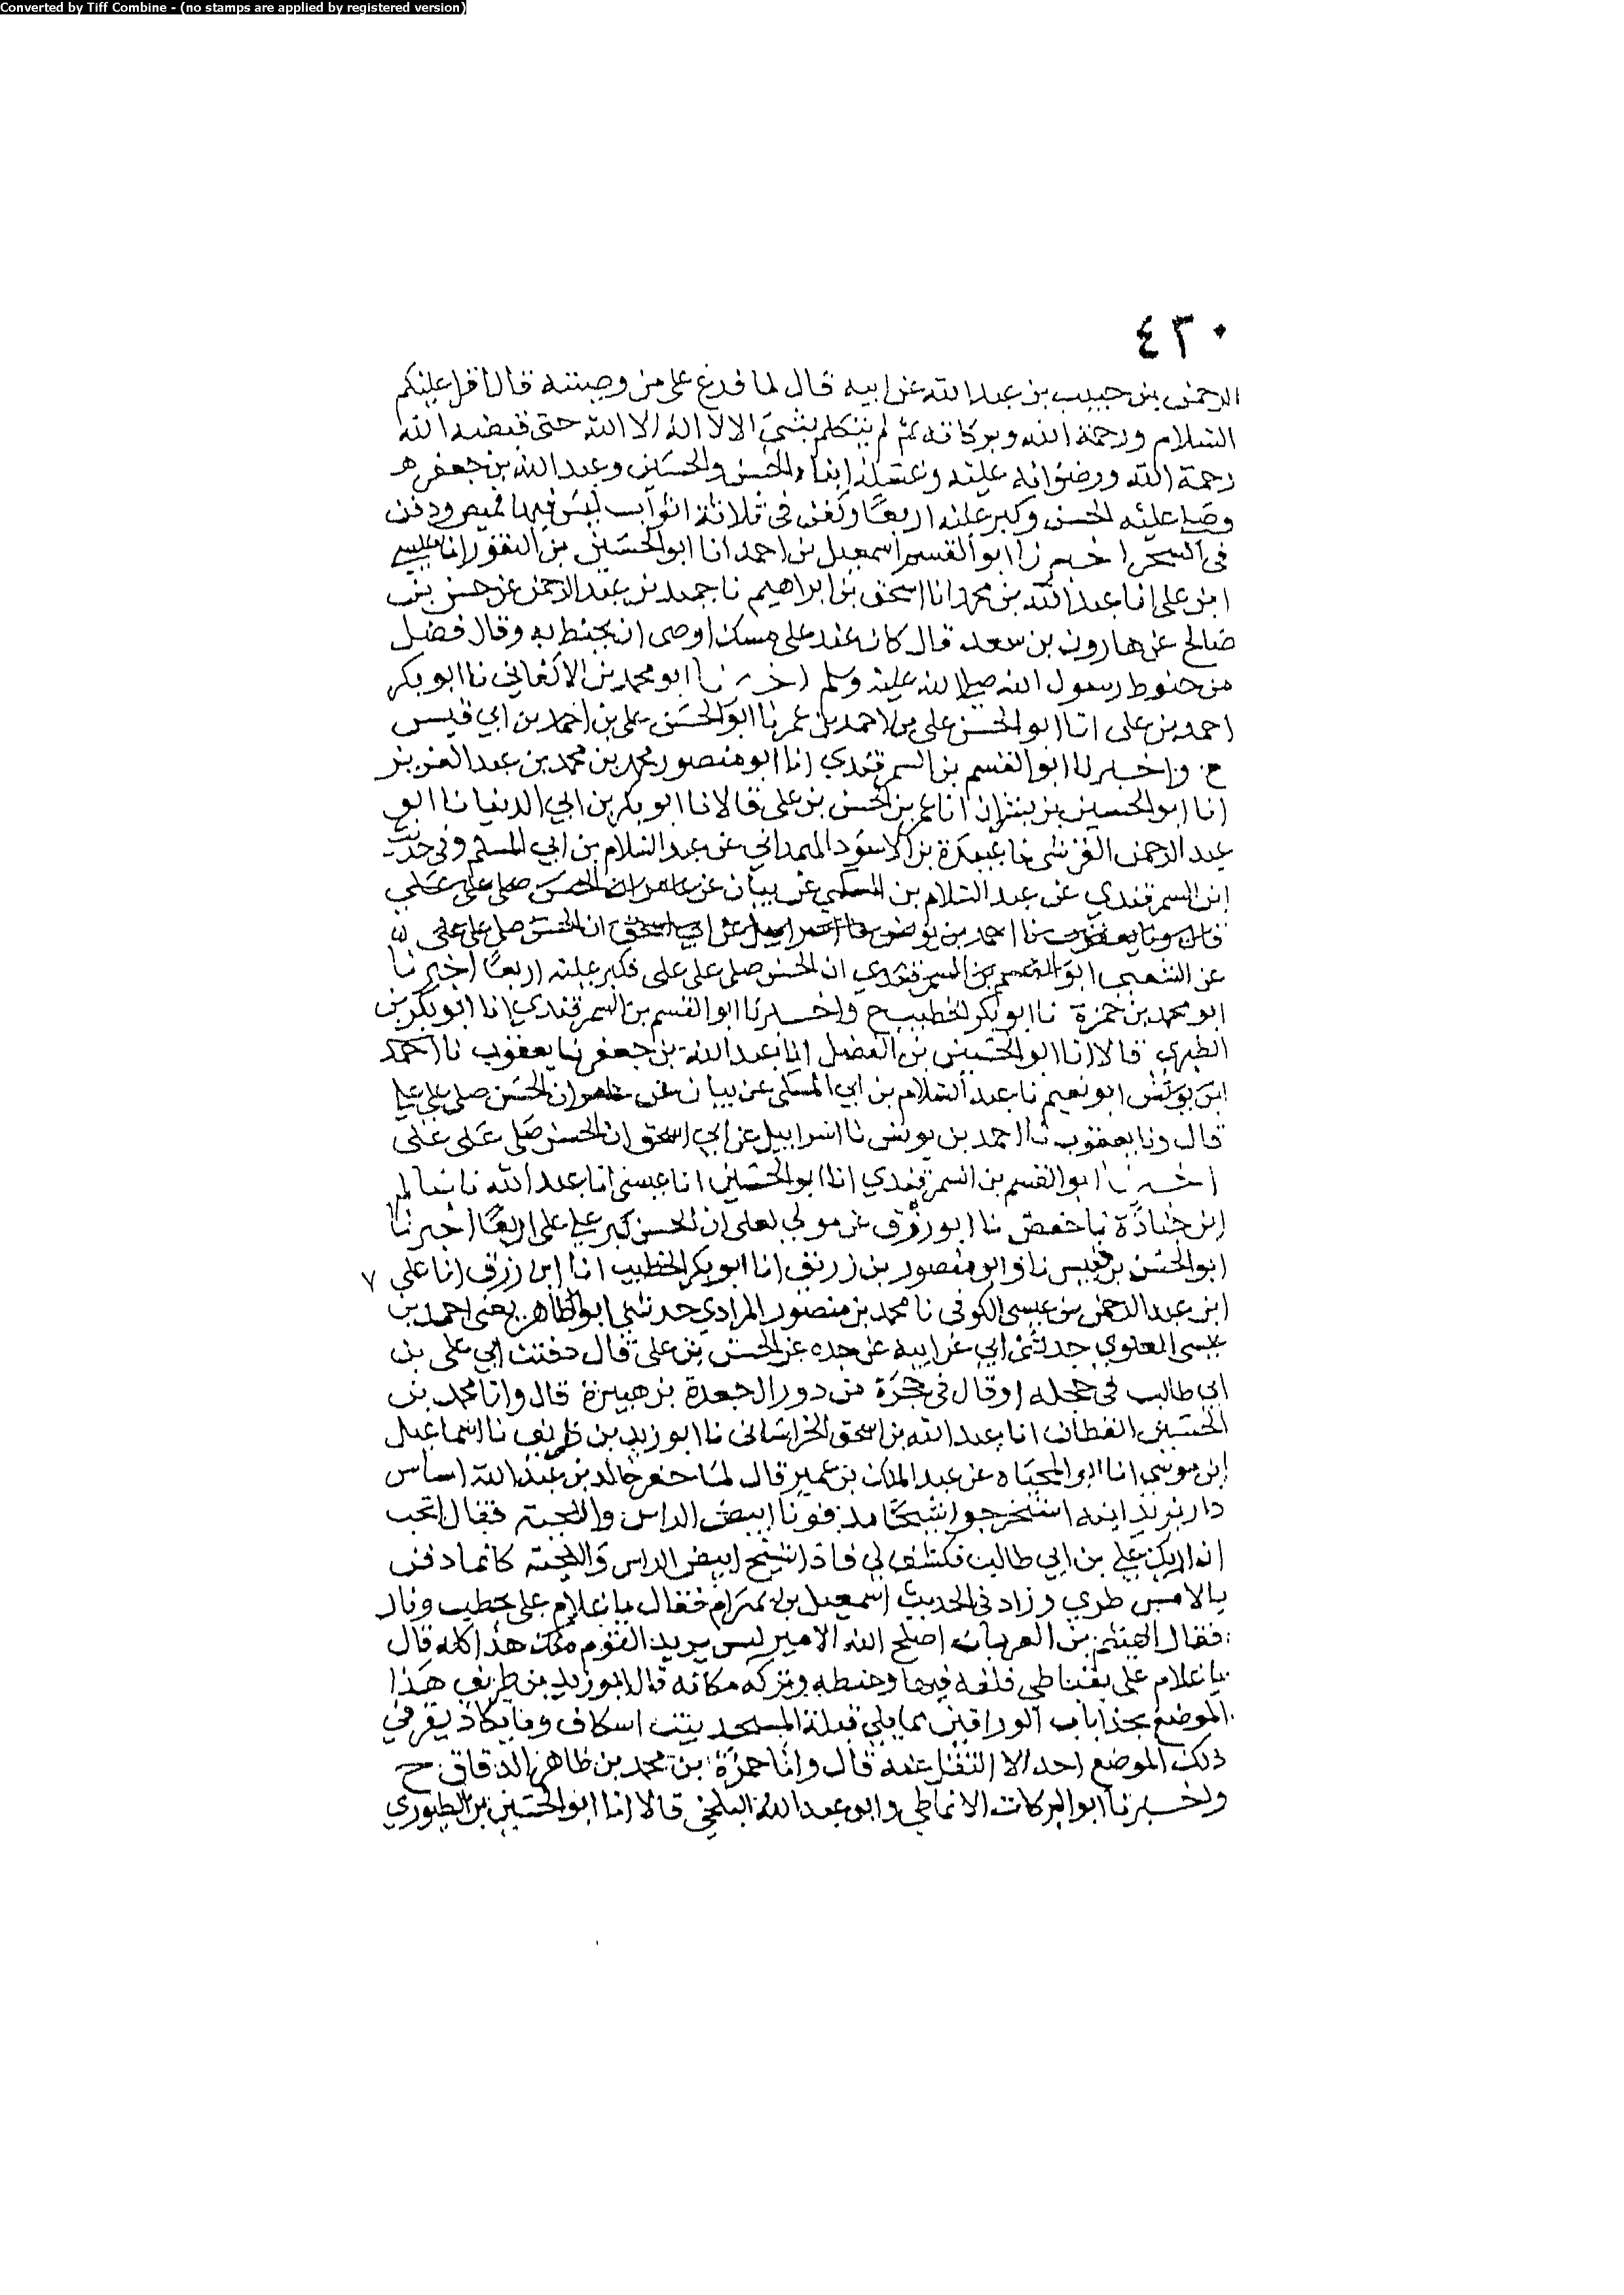 Converted by Tiff Combine - (no stamps are applied by registered version)
٤٣٠
الرحمن بن حبيب بن عبد الله عن ابيه قال لما فرغ علي من وصيته قال اقرا عليكم
السلام ورحمة الله وبركاته ثم لم يتكلم بشي الا لا اله الا الله حتى قبضه الله
رحمة الله ورضوانه عليه وغسله ابناه الحسن والحسين وعبد الله بن جعفر
وصلى عليه الحسن وكبر عليه اربعا وكفن في ثلاثة اثواب ليس فيها قميص ودفن
في السحر اخبرنا ابو القسم اسمعيل بن احمد انا ابو الحسين بن النقور انا عيسى
ابن علي انا عبد الله بن محمد انا اسحق بن ابراهيم نا حميد بن عبد الرحمن عن حسن بن
صالح عن هارون بن سعد قال كان عند علي مسك اوصى ان يحنط به وقال فضل
من حنوط رسول الله صلى الله عليه وسلم اخبرنا ابو محمد بن الاكفاني نا ابو بكر
احمد بن علي انا ابو الحسن علي بن احمد بن عمر نا ابو الحسن علي بن احمد بن ابي قيس
ح واخبرنا ابو القسم بن السمرقندي انا ابو منصور محمد بن محمد بن عبد العزيز
انا ابو الحسين بن بشران انا عمر بن الحسن بن علي قالا نا ابو بكر بن ابي الدنيا نا ابو
عبد الرحمن القرشي نا عبيدة بن الاسود الهمداني عن عبد السلام بن ابي المسلم وفي حديث
ابن السمرقندي عن عبد السلام بن المسكي عن بيان عن عامر ان الحسن صلى على علي
قال ونا يعقوب نا احمد بن يونس نا اسراييل عن ابي اسحق ان الحسن صلى على علي
عن الشعبي ابو القسم بن السمرقندي ان الحسن صلى على علي فكبر عليه اربعا اخبرنا
ابو محمد بن حمزة نا ابو بكر الخطيب ح واخبرنا ابو القسم بن السمرقندي انا ابو بكر بن
الطبري قالا انا ابو الحسين بن الفضل انا عبد الله بن جعفر نا يعقوب نا احمد
ابن يونس ابو نعيم نا عبد السلام بن ابي المسلى عن بيان عن عامر ان الحسن صلى على علي
قال ونا يعقوب نا احمد بن يونس نا اسراييل عن ابي اسحق ان الحسن صلى على علي
اخبرنا ابو القسم بن السمرقندي انا ابو الحسين انا عيسى انا عبد الله نا سالم
ابن جنادة نا حفص نا ابو روق عن مولى لعلي ان الحسن كبر على علي اربعا اخبرنا
ابو الحسن بن قبيس نا وابو منصور بن زريق انا ابو بكر الخطيب انا ابن رزق انا علي ٧
ابن عبد الرحمن بن عيسى الكوفي نا محمد بن منصور المرادي حدثني ابو الطاهر يعني احمد بن
عيسى العلوي حدثني ابي عن ابيه عن جده عن الحسن بن علي قال دفنت ابي علي بن
ابي طالب في حجله او قال في حجرة من دور ال جعدة بن هبيرة قال وانا محمد بن
الحسين القطان انا عبد الله بن اسحق الخراساني نا ابو زيد بن طريف نا اسماعيل
ابن موسى انا ابو المحياه عن عبد الملك بن عمير قال لما حفر خالد بن عبد الله اساس
دار يزيد ابنه استخرجوا شيخا مدفونا ابيض الراس واللحية فقال اتحب
ان اريك علي بن ابي طالب فكشف لي فاذا شيخ ابيض الراس واللحية كانما دفن
بالامس طري وزاد في الحديث اسمعيل بن بهرام فقال يا غلام علي بحطب ونار
فقال الهيثم بن العريان اصلح الله الامير ليس يريد القوم منك هذا كله قال
يا غلام علي بقباطي فلفه فيها وحنطه وتركه مكانه قال ابو زيد بن طريف هذا
الموضع بحذا باب الوراقين مما يلي قبلة المسجد بيت اسكاف وما يكاد يقر في
ذلك الموضع احد الا انتقل عنه قال وانا حمزة بن محمد بن طاهر الدقاق ح
واخبرنا ابو البركات الانماطي وابو عبد الله البلخي قالا انا ابو الحسين بن الطيوري